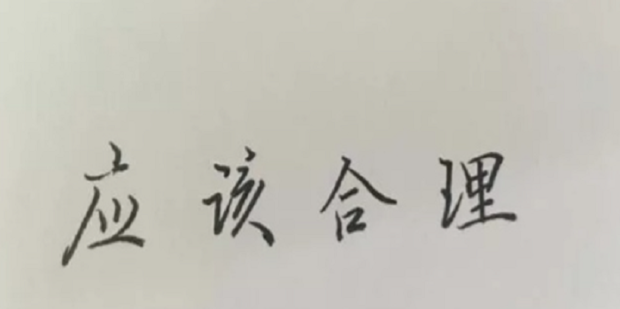 应该合理